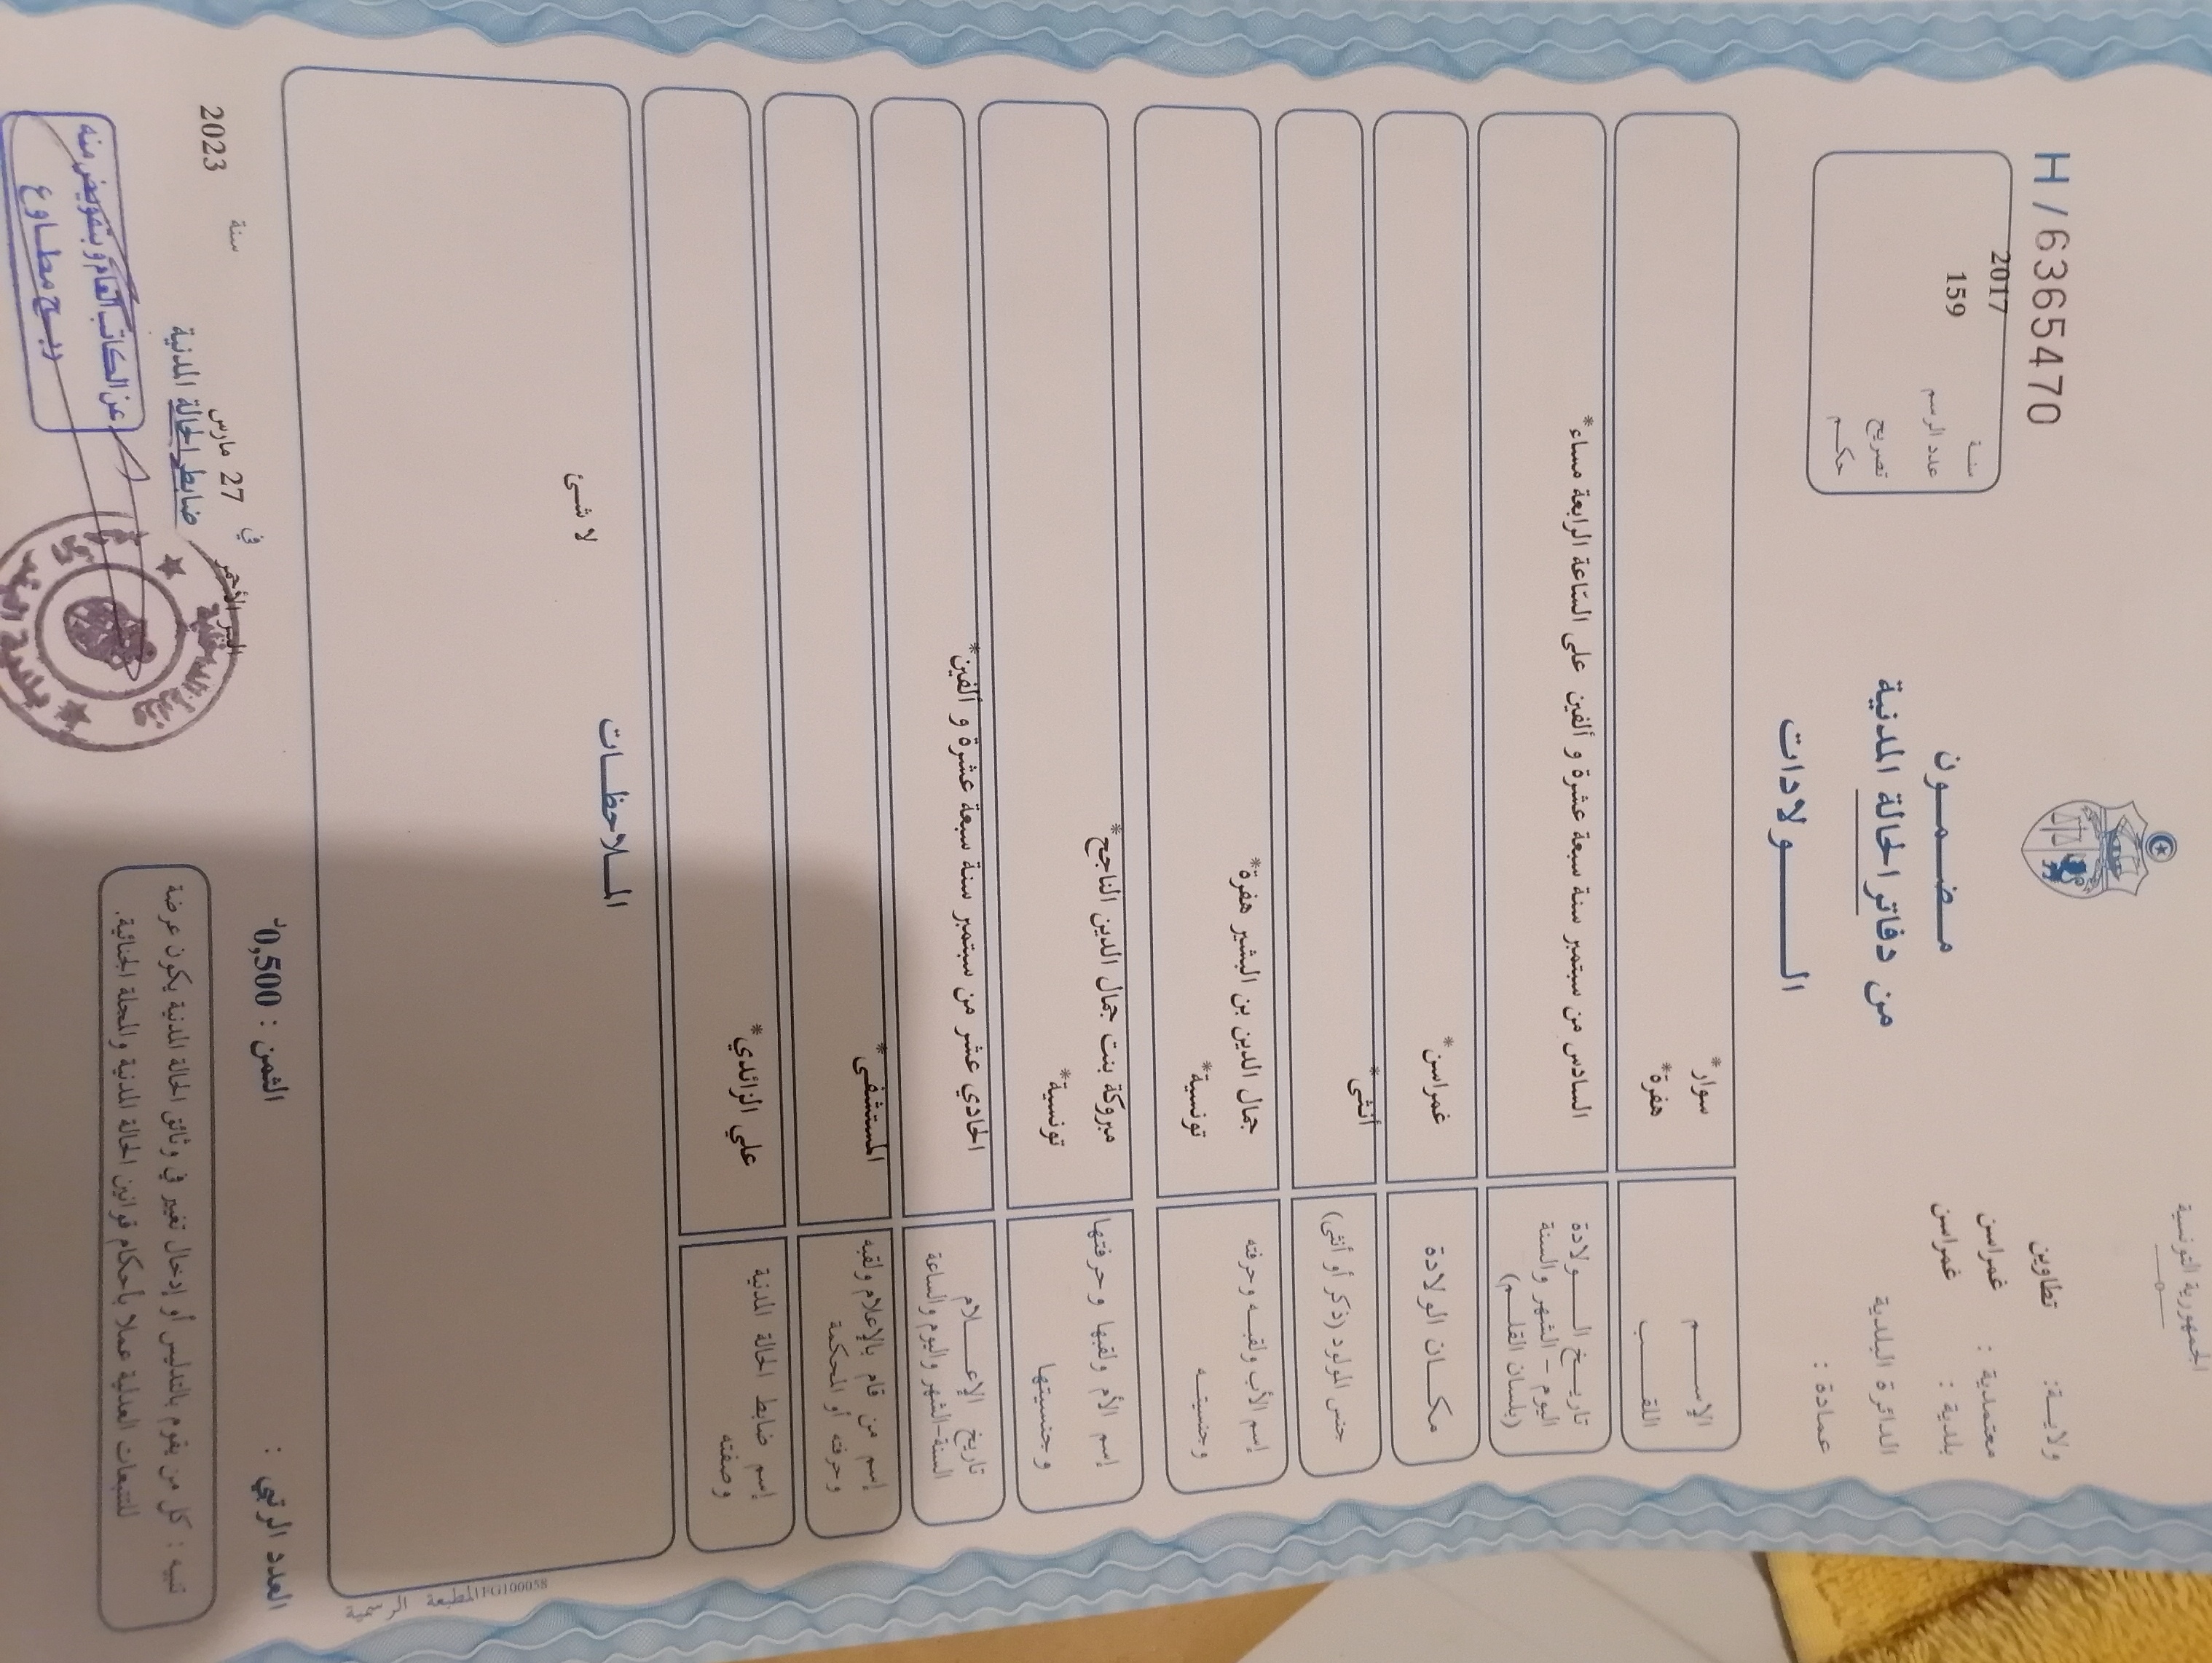 الجمهورية التونسية
ولايـــة: تطاوين
معتمدية : غمراسن
بلدية : غمراسن
الدائرة البلدية
عمادة :
H / 6365470
سنـة 2017
عدد الرسم 159
تصريح
حكـم
مـضـمـون
من دفاتر الحالة المدنية
الـــولادات
الإســـم سوار*
اللقـــب هفرة*
تاريـخ الـــولادة
اليوم – الشهر والسنة
(بلسان القلـــم)
السادس من سبتمبر سنة سبعة عشرة و ألفين على السّاعة الرابعة مساء*
مكـــان الولادة غمراسن*
جنس المولود (ذكر أو أنثى) أنثى*
إسم الأب ولقبـه وحرفته جمال الدين بن البشير هفرة*
وجنسيتـه تونسية*
إسم الأم ولقبها وحرفتها مبروكة بنت جمال الدين الناجح*
وجنسيتها تونسية*
تاريخ الإعـــلام
السنة-الشهر واليوم والساعة
الحادي عشر من سبتمبر سنة سبعة عشرة و ألفين*
إسم من قام بالإعلام ولقبه المستشفى*
وحرفته أو المحكمة
إسم ضابط الحالة المدنية علي الزائدي*
وصفته
المـلاحظـات
لا شئ
المطبعة الرسمية FG100058
العدد الرتبي :
الثمن : 0,500د
البئر الأحمر في 27 مارس سنة 2023
ضابط الحالة المدنية
عن الكاتب العام و بتفويض منه
ربـح مطـاوع
تنبيه : كل من يقوم بالتدليس أو إدخال تغيير في وثائق الحالة المدنية يكون عرضة
للتتبعات العدلية عملا بأحكام قوانين الحالة المدنية والمجلة الجنائية.